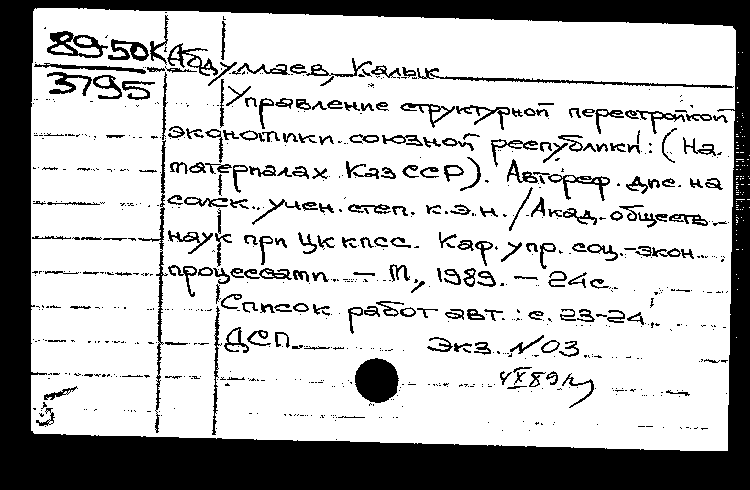 89-50К Абдуллаев, Калык
3795
Управление структурной перестройкой
экономики союзной республики: (На
материалах КазССР). Автореф. дис. на
соиск. учен. степ. к.э.н. / Акад. обществ.
наук при ЦК КПСС. Каф. упр. соц.-экон.
процессами. — М., 1989. — 24с.
Список работ авт.: с. 23-24.
ДСП. Экз. №03.
5